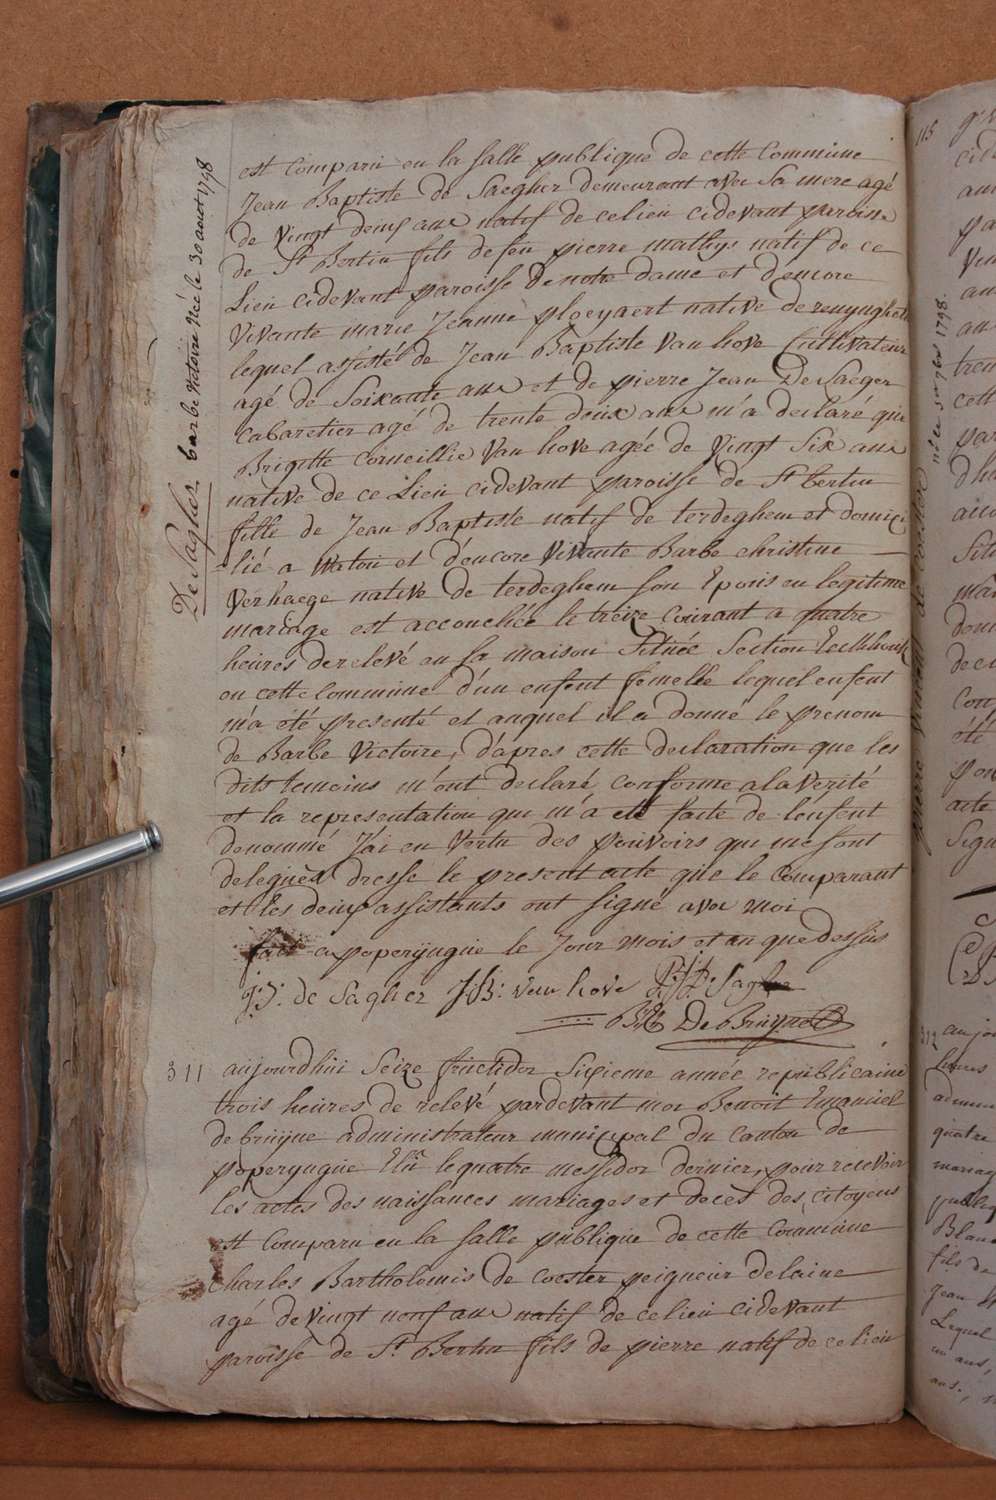 De Sagher barbe Victoire Née le 30 aout 1798
est Comparu en la Salle publique de cette Commune
Jean Baptiste de Saegher demeurant avec Sa mere agé
de Vingt deux ans natif de ce lieu cidevant paroisse
de St Bertin fils de feu pierre mathys natif de ce
Lieu cidevant paroisse de notre dame et d'encore
Vivante marie Jeanne ploeyaert native de renynghelst
lequel assisté de Jean Baptiste Van hove Cultivateur
agé de Soixante ans et de pierre Jean De Saeger
Cabaretier agé de trente deux ans m'a declaré que
Brigitte Corneillie Van hove agée de Vingt Six ans
native de ce Lieu cidevant paroisse de St bertin
fille de Jean Baptiste natif de terdeghem et domici
lié a Watou et d'encore Vivante Barbe christine
Verhaege native de terdeghem Son Epouse en legitime
mariage est accouchée le treize Courant a quatre
heures de relevé en sa maison Située Section
en cette Commune d'un enfent femelle lequel enfent
m'a été presenté et auquel il a donné le prenom
de Barbe Victoire, d'apres cette declaration que les
dits temoins m'ont declaré conforme a la Verité
et la representation qui m'a eté faite de l'enfent
denommé J'ai en Vertu des pouvoirs qui me sont
delegués dresse le present acte que le Comparant
et les deux assistants ont signé avec moi
fait a poperyngue le Jour mois et an que dessus
J:B: de Sagher J:B: van hove P:J: D: Saghe
B:E De Bruyne
311 aujourdhui Seize fructidor Sixieme année republicaine
trois heures de relevé pardevant moi Benoit Emanuel
de bruyne administrateur municipal du canton de
poperyngue Elu le quatre messidor dernier, pour recevoir
les actes des naissances mariages et decès des citoyens
est Comparu en la Salle publique de cette commune
Charles Bartholomis de Coester peigneur de laine
agé de Vingt neuf ans natif de ce lieu cidevant
paroisse de St Bertin fils de pierre natif de ce lieu
115
de Coester née le 7bre 1798.
312 aujou
heures
quatre
mariag
publiq
fils de
Jean
Lequel